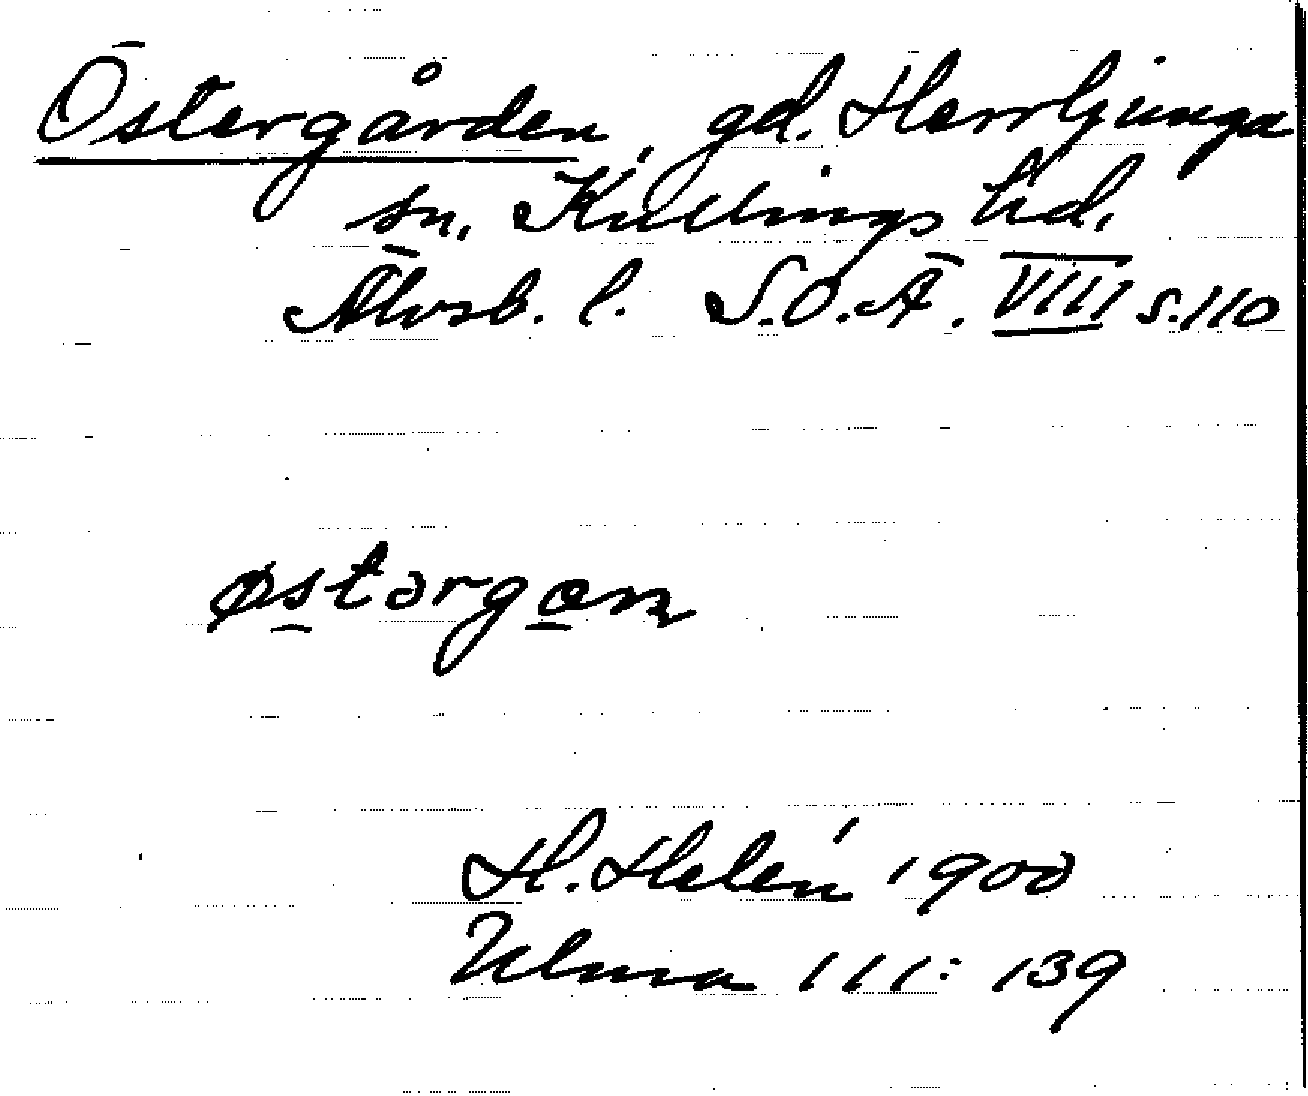 Östergården, gd. Herrljunga
sn. Kullings hd.
Älvsb. l. S.O.Ä. VIII s.110
østərgan
H. Helén 1900
Ulma 111: 139